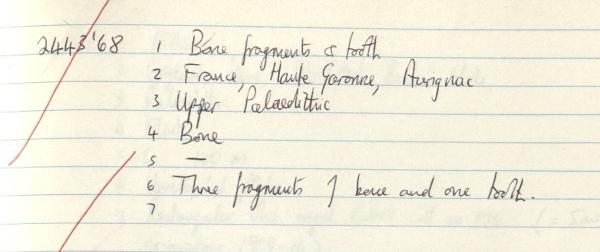 2443'68 1 Bone fragments & tooth
2 France, Haute Garonne, Aurignac
3 Upper Palaeolithic
4 Bone
5 —
6 Three fragments of bone and one tooth.
7